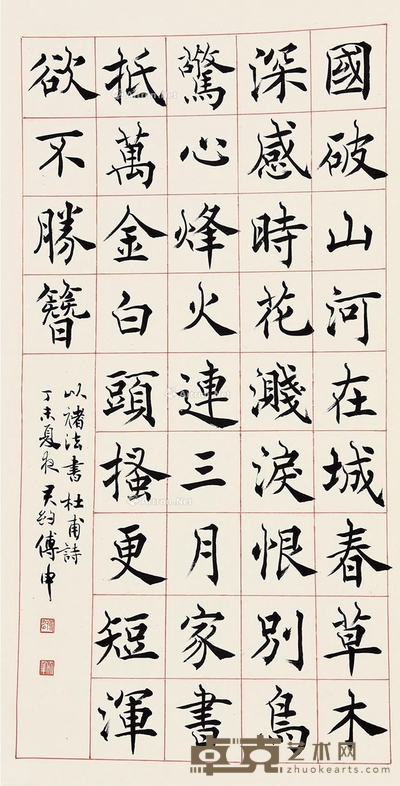 國破山河在城春草木
深感時花濺淚恨別鳥
驚心烽火連三月家書
抵萬金白頭搔更短渾
欲不勝簪
以褚法書杜甫詩
丁未夏夜君約傅申
卓克艺术网
zhuokearts.com